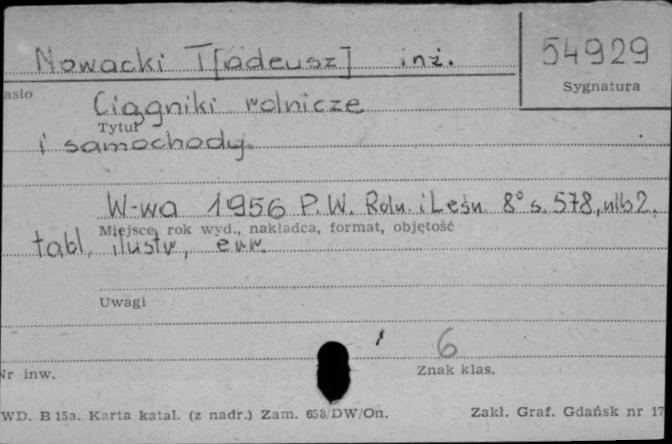 Nowacki T[adeusz] inż. 54929
asło Sygnatura
Ciągniki rolnicze
Tytuł
i samochody.
W-wa 1956 P.W. Roln. i Leśn. 8° s. 578, nlb 2,
Miejsce, rok wyd., nakładca, format, objętość
tabl, ilustr, err.
Uwagi
6
Nr inw. Znak klas.
WD. B 15a. Karta katal. (z nadr.) Zam. 658/DW/On. Zakł. Graf. Gdańsk nr 17